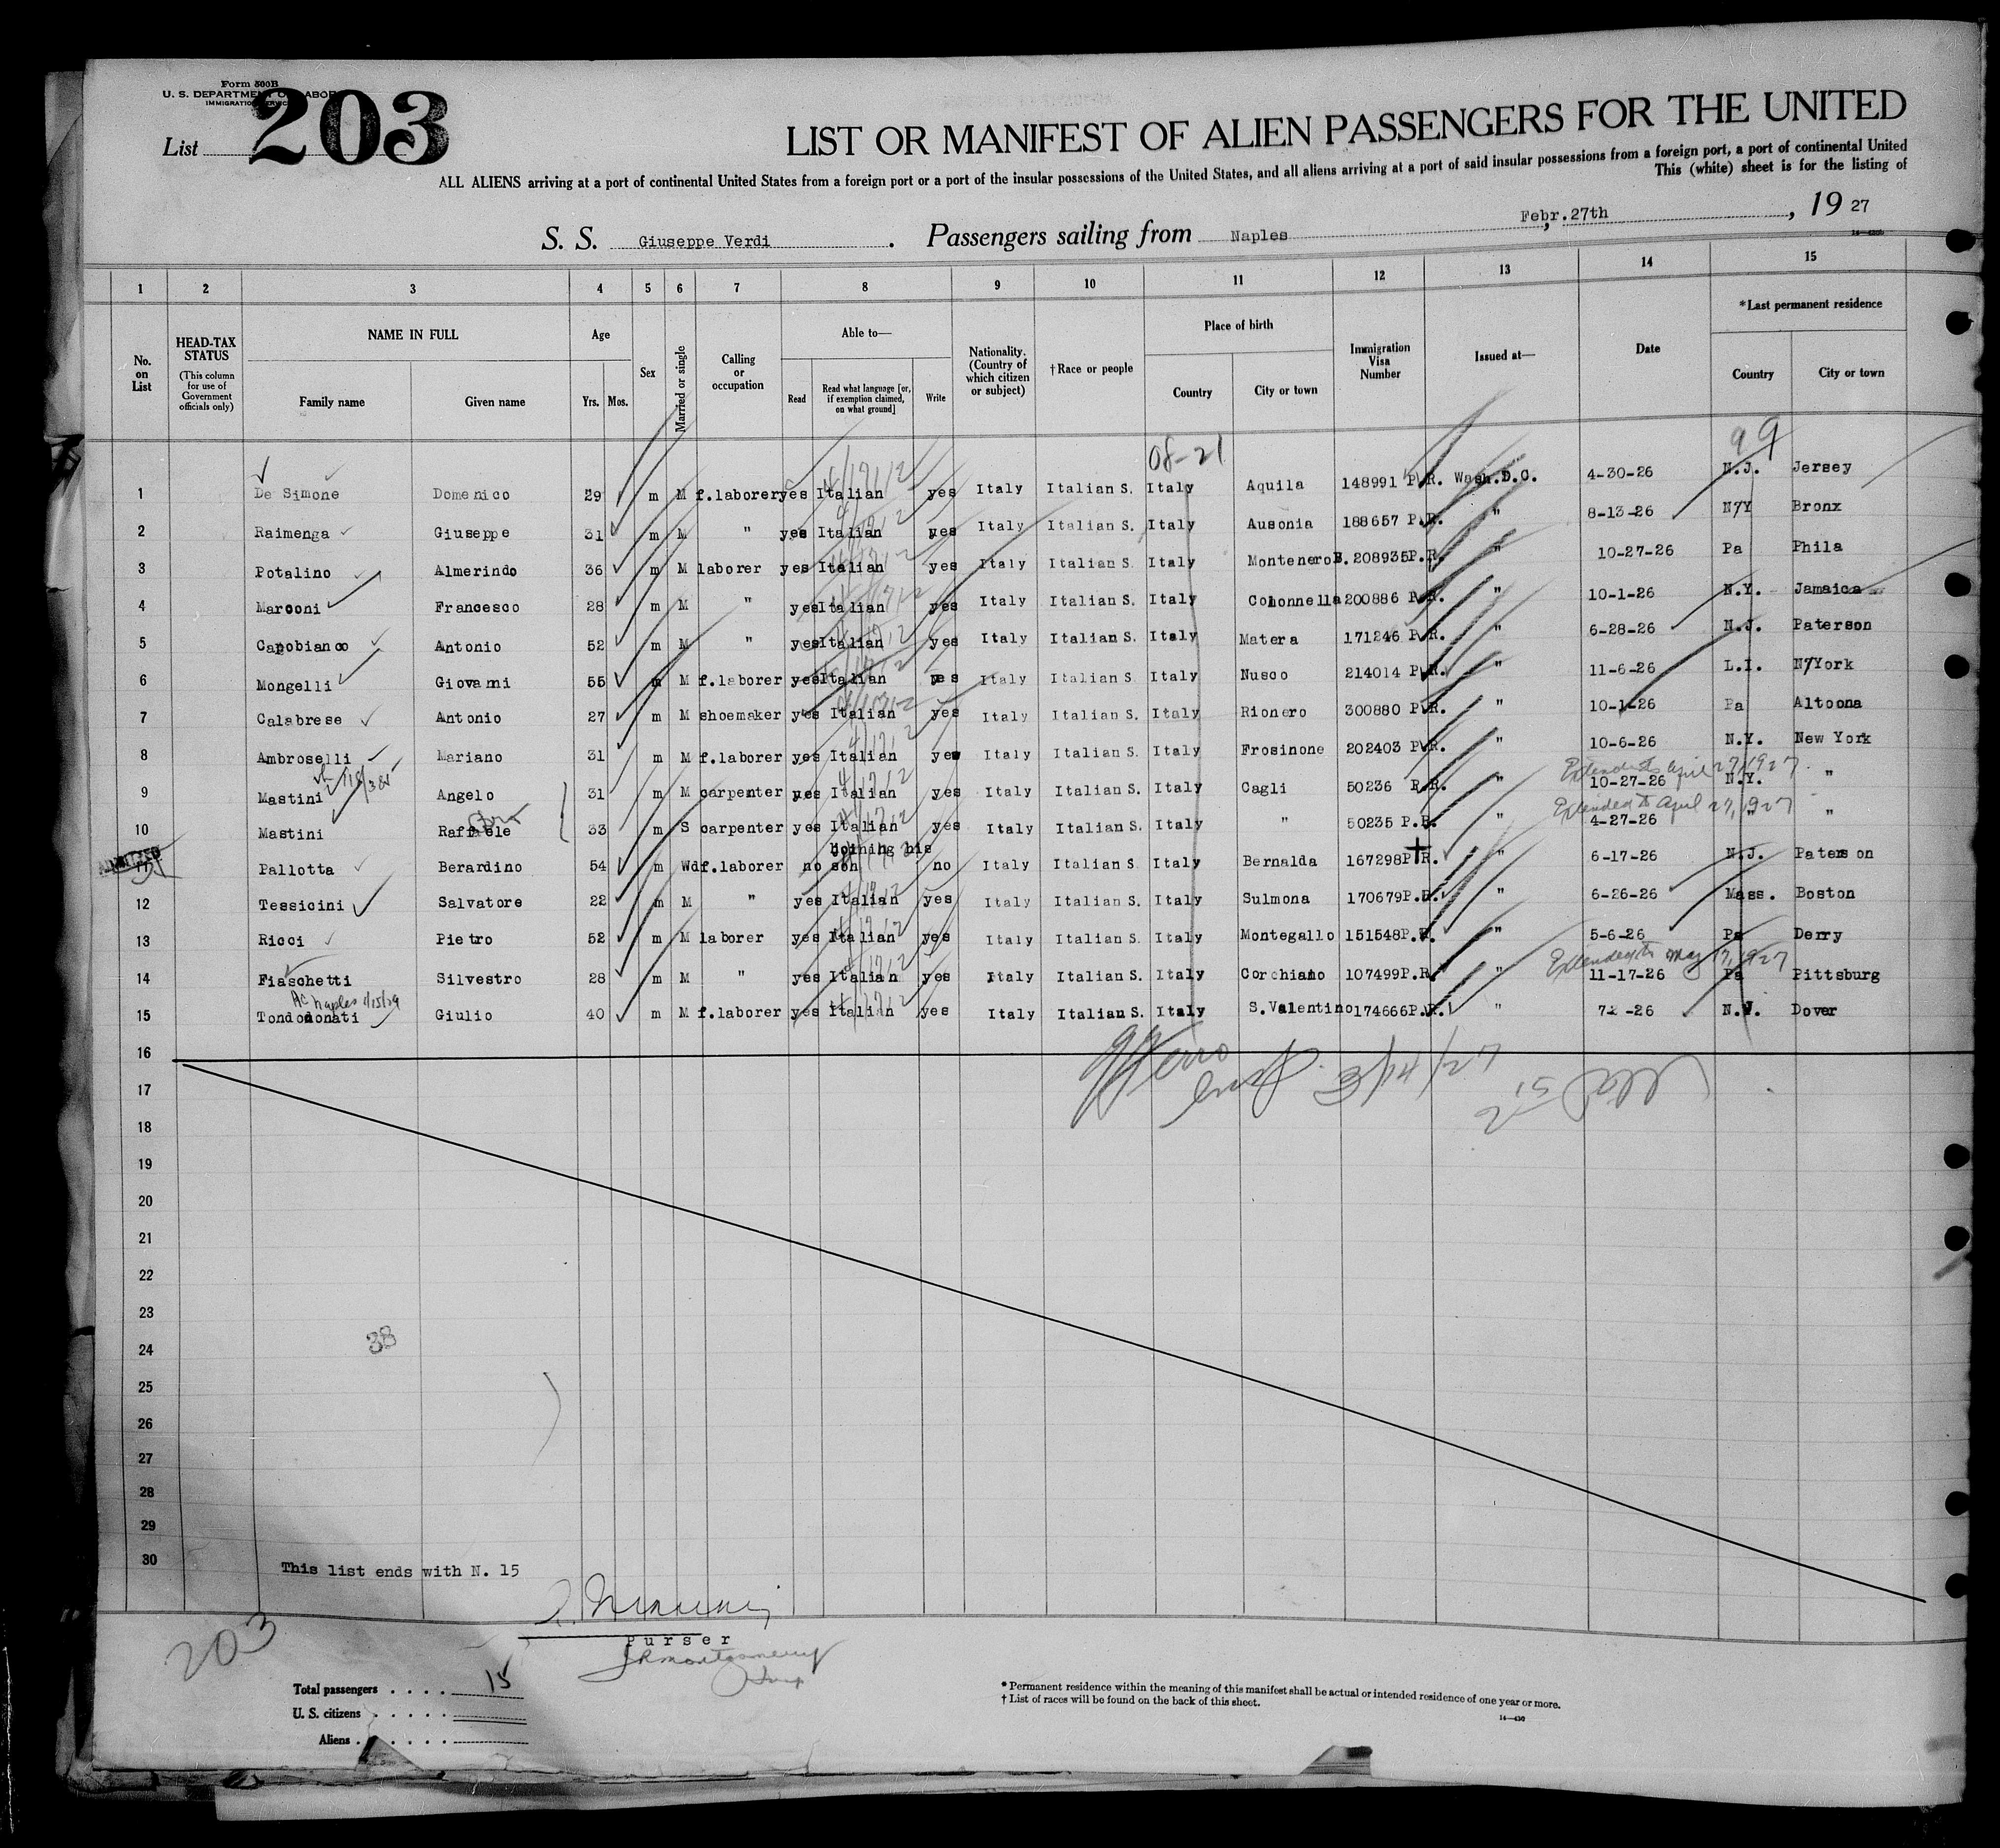 Form 500B
U. S. DEPARTMENT OF LABOR
IMMIGRATION SERVICE
List 203
LIST OR MANIFEST OF ALIEN PASSENGERS FOR THE UNITED
ALL ALIENS arriving at a port of continental United States from a foreign port or a port of the insular possessions of the United States, and all aliens arriving at a port of said insular possessions from a foreign port, a port of continental United
This (white) sheet is for the listing of
S. S. Giuseppe Verdi . Passengers sailing from Naples , Febr.27th , 19 27
1 2 3 4 5 6 7 8 9 10 11 12 13 14 15
No. on List
HEAD-TAX STATUS (This column for use of Government officials only)
NAME IN FULL Family name Given name
Age Yrs. Mos.
Sex
Married or single
Calling or occupation
Able to— Read Read what language [or, if exemption claimed, on what ground] Write
Nationality. (Country of which citizen or subject)
†Race or people
Place of birth Country City or town
Immigration Visa Number
Issued at—
Date
*Last permanent residence Country City or town
08-21 99
1 De Simone Domenico 29 m M f.laborer yes Italian yes Italy Italian S. Italy Aquila 148991 P.R. Wash.D.C. 4-30-26 N.J. Jersey
2 Raimenga Giuseppe 31 m M " yes Italian yes Italy Italian S. Italy Ausonia 188657 P.R. " 8-13-26 N/Y Bronx
3 Potalino Almerindo 36 m M laborer yes Italian yes Italy Italian S. Italy MonteneroB. 208935P.R. " 10-27-26 Pa Phila
4 Marconi Francesco 28 m M " yes Italian yes Italy Italian S. Italy Colonnella 200886 P.R. " 10-1-26 N.Y. Jamaica
5 Capobianco Antonio 52 m M " yes Italian yes Italy Italian S. Italy Matera 171246 P.R. " 6-28-26 N.J. Paterson
6 Mongelli Giovanni 55 m M f.laborer yes Italian yes Italy Italian S. Italy Nusco 214014 P.R. " 11-6-26 L.I. N/York
7 Calabrese Antonio 27 m M shoemaker yes Italian yes Italy Italian S. Italy Rionero 300880 P.R. " 10-1-26 Pa Altoona
8 Ambroselli Mariano 31 m M f.laborer yes Italian yes Italy Italian S. Italy Frosinone 202403 P.R. " 10-6-26 N.Y. New York
Extended to april 27, 1927
9 Mastini Angelo 31 m M carpenter yes Italian yes Italy Italian S. Italy Cagli 50236 P.R. " 10-27-26 N.Y. "
Extended to april 27, 1927
10 Mastini Raffaele 33 m S carpenter yes Italian yes Italy Italian S. Italy " 50235 P.R. " 4-27-26 " "
ADMITTED
Joining his
11 Pallotta Berardino 54 m Wd f.laborer no son no Italy Italian S. Italy Bernalda 167298P.R. " 6-17-26 N.J. Paterson
12 Tessicini Salvatore 22 m M " yes Italian yes Italy Italian S. Italy Sulmona 170679P.R. " 6-26-26 Mass. Boston
13 Ricci Pietro 52 m M laborer yes Italian yes Italy Italian S. Italy Montegallo 151548P.R. " 5-6-26 Pa Derry
Extended to may 17, 1927
14 Fiaschetti Silvestro 28 m M " yes Italian yes Italy Italian S. Italy Corchiano 107499P.R. " 11-17-26 Pa Pittsburg
Naples 1/15/29
15 Tondodonati Giulio 40 m M f.laborer yes Italian yes Italy Italian S. Italy S.Valentino 174666P.R. " -26 N.J. Dover
16
17
18
19
20
21
22
23
24 38
25
26
27
28
29
30
This list ends with N. 15
Purser
JRMontgomery
203
Total passengers . . . . 15
U. S. citizens . . . . .
Aliens . . . . . .
* Permanent residence within the meaning of this manifest shall be actual or intended residence of one year or more.
† List of races will be found on the back of this sheet.
14—430